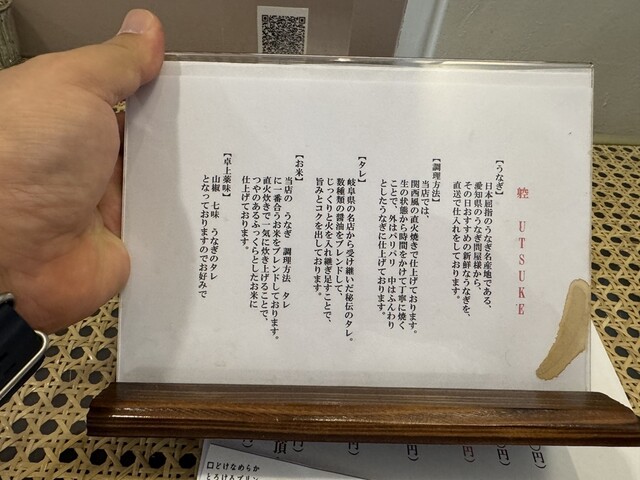 躻 UTSUKE
【うなぎ】
日本屈指のうなぎ名産地である、
愛知県のうなぎ問屋様から、
その日おすすめの新鮮なうなぎを、
直送で仕入れをしております。
【調理方法】
当店では、
関西風の直火焼きで仕上げております。
生の状態から時間をかけて丁寧に焼く
ことで、外はパリパリ 中はふんわり
としたうなぎに仕上げております。
【タレ】
岐阜県の名店から受け継いだ秘伝のタレ。
数種類の醤油をブレンドして、
じっくりと火を入れ継ぎ足すことで、
旨みとコクを出しております。
【お米】
当店の うなぎ 調理方法 タレ
に一番合うお米をブレンドしております。
直火炊きで一気に炊き上げることで、
つやのあるふっくらとしたお米に
仕上げております。
【卓上薬味】
山椒 七味 うなぎのタレ
となっておりますのでお好みで
円）
円）
円）
頂
口どけなめらか
とろけるプリン